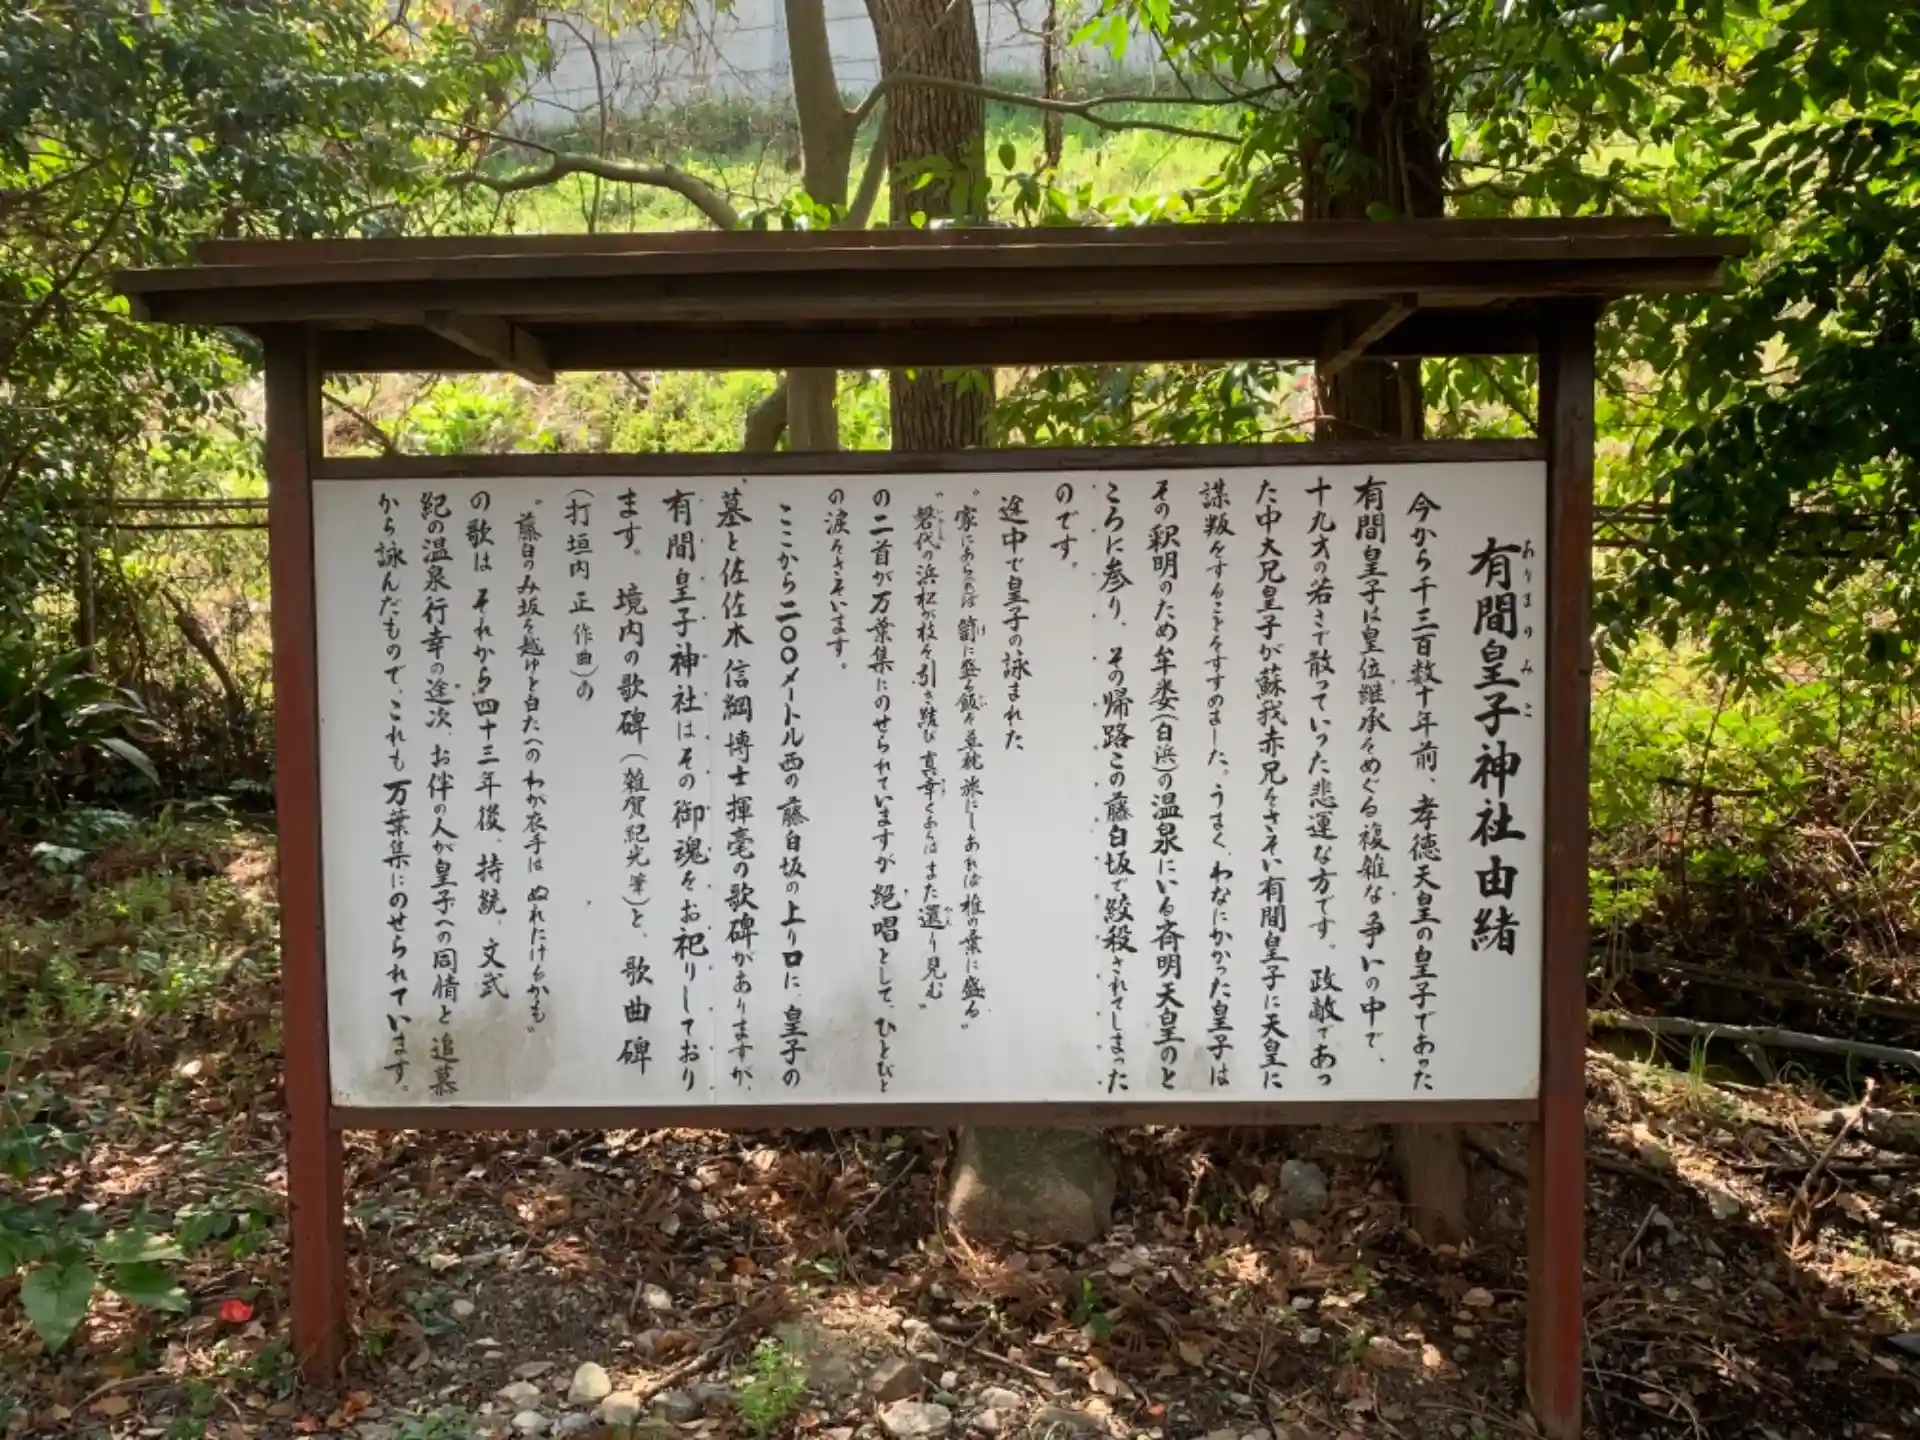 有間皇子神社由緒
ありまのみこ
今から千三百数十年前、孝徳天皇の皇子であった
有間皇子は皇位継承をめぐる複雑な争いの中で、
十九才の若さで散っていった悲運な方です。政敵であっ
た中大兄皇子が蘇我赤兄をさそい有間皇子に天皇に
謀叛をすることをすすめました。うまく、わなにかかった皇子は
その釈明のため牟婁(白浜)の温泉にいる斉明天皇のと
ころに参り、その帰路この藤白坂で絞殺されてしまった
のです。
途中で皇子の詠まれた
"家にあれば笥に盛る飯を草枕旅にしあれば椎の葉に盛る"
"磐代の浜松が枝を引き結び真幸くあらばまた還り見む"
の二首が万葉集にのせられていますが絶唱として、ひとびと
の涙をさそいます。
ここから二〇〇メートル西の藤白坂の上り口に、皇子の
墓と佐佐木信綱博士揮毫の歌碑がありますが、
有間皇子神社はその御魂をお祀りしており
ます。境内の歌碑(雑賀紀光筆)と、歌曲碑
(打垣内正作曲)の
"藤白のみ坂を越ゆと白たへのわが衣手はぬれにけるかも"
の歌はそれから四十三年後、持統、文武
紀の温泉行幸の途次、お伴の人が皇子への同情と追慕
から詠んだもので、これも万葉集にのせられています。